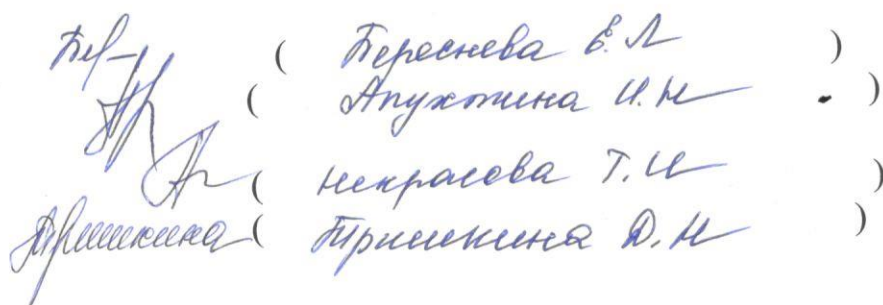 ( Береснева Е.Л )
( Апухтина И.Н )
( Некрасова Т.И )
Тришкина ( Тришкина Д.Н )